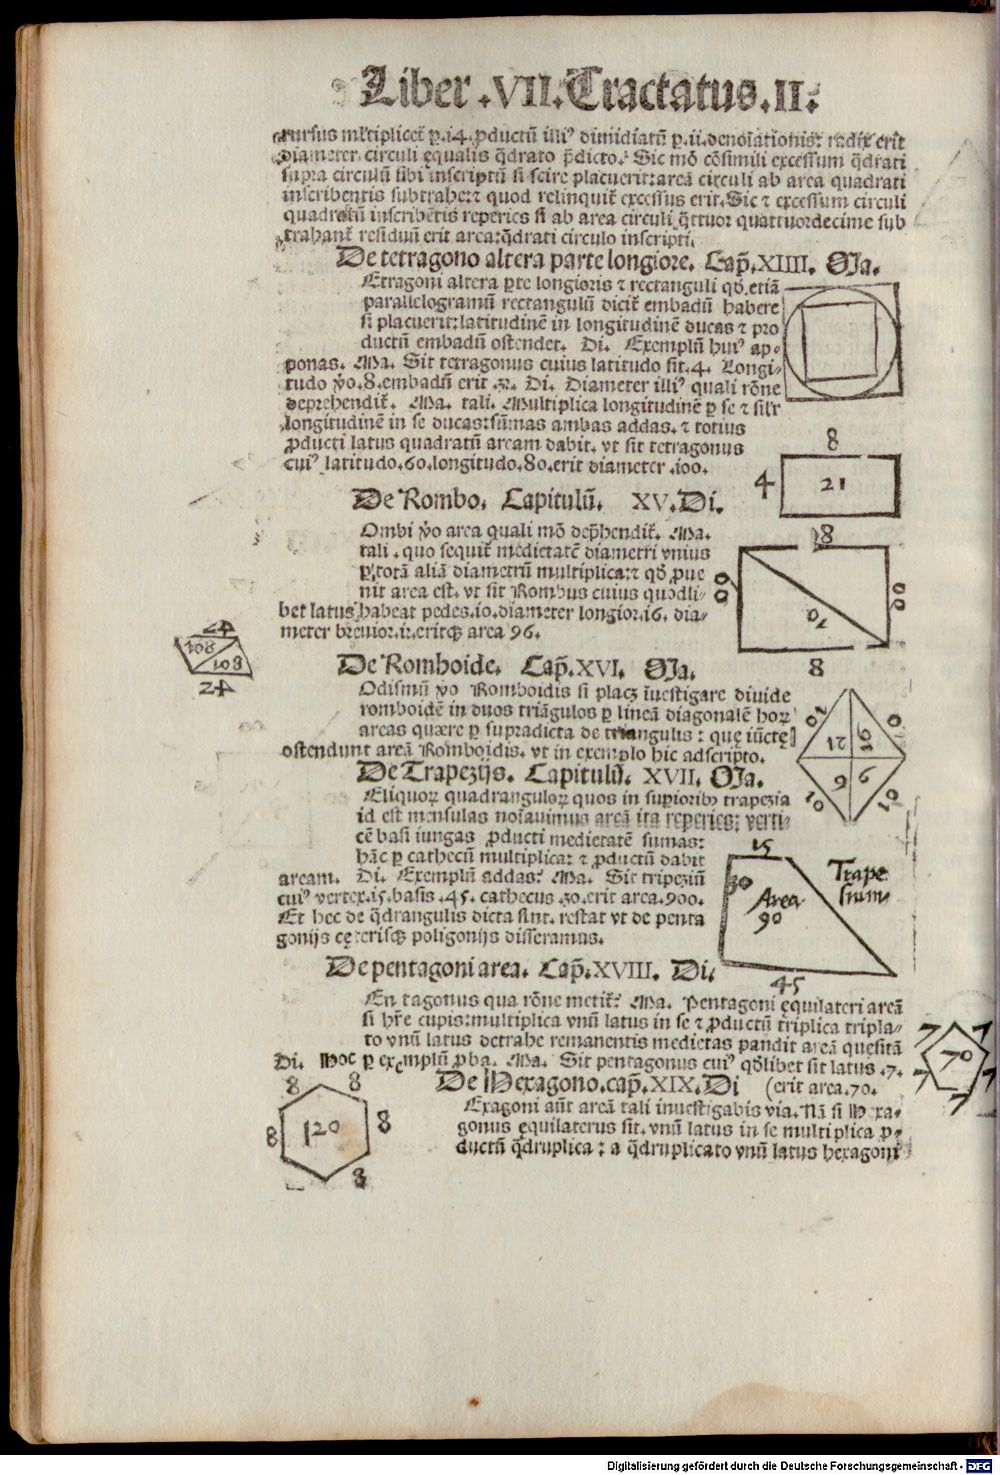 Liber .VII. Tractatus .II.
rursus mĺtiplicet̃ ꝑ .i4. ꝓductũ illiꝰ dimidiatũ ꝑ .ii. denoĩationis: radix erit
diameter circuli ęqualis q̃drato p̃dicto. Sic mõ cõsimili excessum q̃drati
supra circulũ sibi inscriptũ si scire placuerit: areã circuli ab area quadrati
inscribentis subtrahe: ⁊ quod relinquit̃ excessus erit. Sic ⁊ excessum circuli
quadratũ inscribẽtis reperies si ab area circuli q̃ttuor quattuordecime sub
trahant̃ residuũ erit area: q̃drati circulo inscripti.
De tetragono altera parte longiore. Cap̃. XIIII. Ma.
Etragoni altera ꝑte longioris ⁊ rectanguli qđ etiã
parallelogramũ rectangulũ dicit̃ embadũ habere
si placuerit: latitudinẽ in longitudinẽ ducas ⁊ pro
ductũ embadũ ostendet. Di. Exemplũ huiꝰ ap⸗
ponas. Ma. Sit tetragonus cuius latitudo sit .4. Longi⸗
tudo ṽo .8. embadũ erit .32. Di. Diameter illiꝰ quali rõne
deprehendit̃. Ma. tali. Multiplica longitudinẽ ꝑ se ⁊ silr
longitudinẽ in se ducas: sũmas ambas addas. ⁊ totius
ꝓducti latus quadratũ aream dabit. vt sit tetragonus
cuiꝰ latitudo .60. longitudo .80. erit diameter .100.
8
4
21
De Rombo. Capitulũ. XV. Di.
Ombi ṽo area quali mõ dep̃hendit̃. Ma.
tali. quo sequit̃ medietatẽ diametri vnius
ꝑ totã aliã diametrũ multiplica: ⁊ qđ ꝓue
nit area est. vt sit Rombus cuius quodli⸗
bet latus habeat pedes .io. diameter longior .16. dia⸗
meter breuior .12. eritqꝫ area 96.
8
8
10
8
8
24
108
108
24
De Romboide. Cap̃. XVI. Ma.
Odismũ ṽo Romboidis si placꝫ ĩuestigare diuide
romboidẽ in duos triãgulos ꝑ lineã diagonalẽ hoꝝ
areas quære ꝑ supradicta de triangulis: quę iũctę
ostendunt areã Romboidis. vt in exemplo hic adscripto.
10
10
12
16
6
6
10
10
De Trapezijs. Capitulũ. XVII. Ma.
Eliquoꝝ quadranguloꝝ quos in supioribꝫ trapezia
id est mensulas noĩauimus areã ita reperies: verti⸗
cẽ basi iungas ꝓducti medietatẽ sumas:
hãc ꝑ cathecũ multiplica: ⁊ ꝓductũ dabit
aream. Di. Exemplũ addas? Ma. Sit tripeziũ
cuiꝰ vertex .i5. basis .45. cathecus .30. erit area .900.
Et hec de q̃drangulis dicta sint. restat vt de penta
gonijs cęterisqꝫ poligonijs disseramus.
15
30
Area
90
Trape
sium
45
De pentagoni area. Cap̃. XVIII. Di.
En tagonus qua rõne metit̃? Ma. Pentagoni ęquilateri areã
si hr̃e cupis: multiplica vnũ latus in se ⁊ ꝓductũ triplica tripla⸗
to vnũ latus detrahe remanentis medietas pandit areã quęsitã
Di. Hoc ꝑ exẽmplũ ꝓba. Ma. Sit pentagonus cuiꝰ qđlibet sit latus .7.
De Hexagono. cap̃. XIX. Di (erit area .70.
7
7
7
7
7
70
8
8
8
8
8
120
Exagoni aũt areã tali inuestigabis via. Nã si Hexa⸗
gonus equilaterus sit. vnũ latus in se multiplica ꝓ⸗
ductũ q̃druplica: a q̃druplicato vnũ latus hexagoni
Digitalisierung gefördert durch die Deutsche Forschungsgemeinschaft - DFG